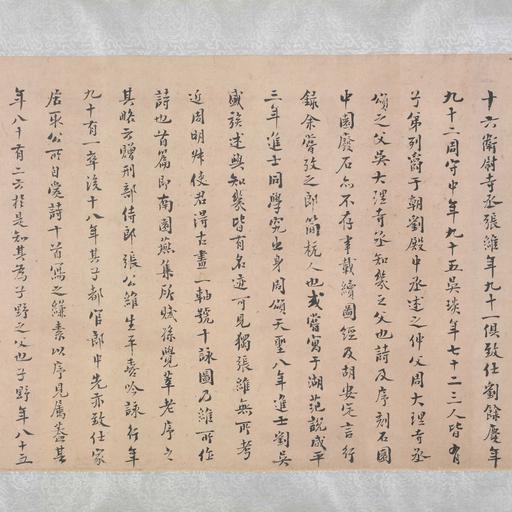 十六衛尉寺丞張維年九十一俱致仕劉餘慶年
九十二周守中年九十五吳琰年七十二三人皆有
子弟列爵于朝劉殿中丞述之仲父周大理寺丞
頌之父吳大理寺丞知幾之父也詩及序刻石園
中園廢石亦不存事載續圖經及胡安定言行
錄余嘗攷之即簡抚人也或嘗寓于湖范說咸平
三年進士同學究出身周頌天聖八年進士劉吳
盛族述與知幾皆有名迹可見獨張維無所考
近周明叔使君得古畫一軸號十詠圖乃維所作
詩也首篇即南園燕集所賦孫覺莘老序之
其略云贈刑部侍郎張公維生平喜吟詠行年
九十有一卒後十八年其子都官郎中先亦致仕家
居取公所自愛詩十首寫之縑素以序見屬蓋其
年八十有二云於是知其為子野之父也子野年八十五